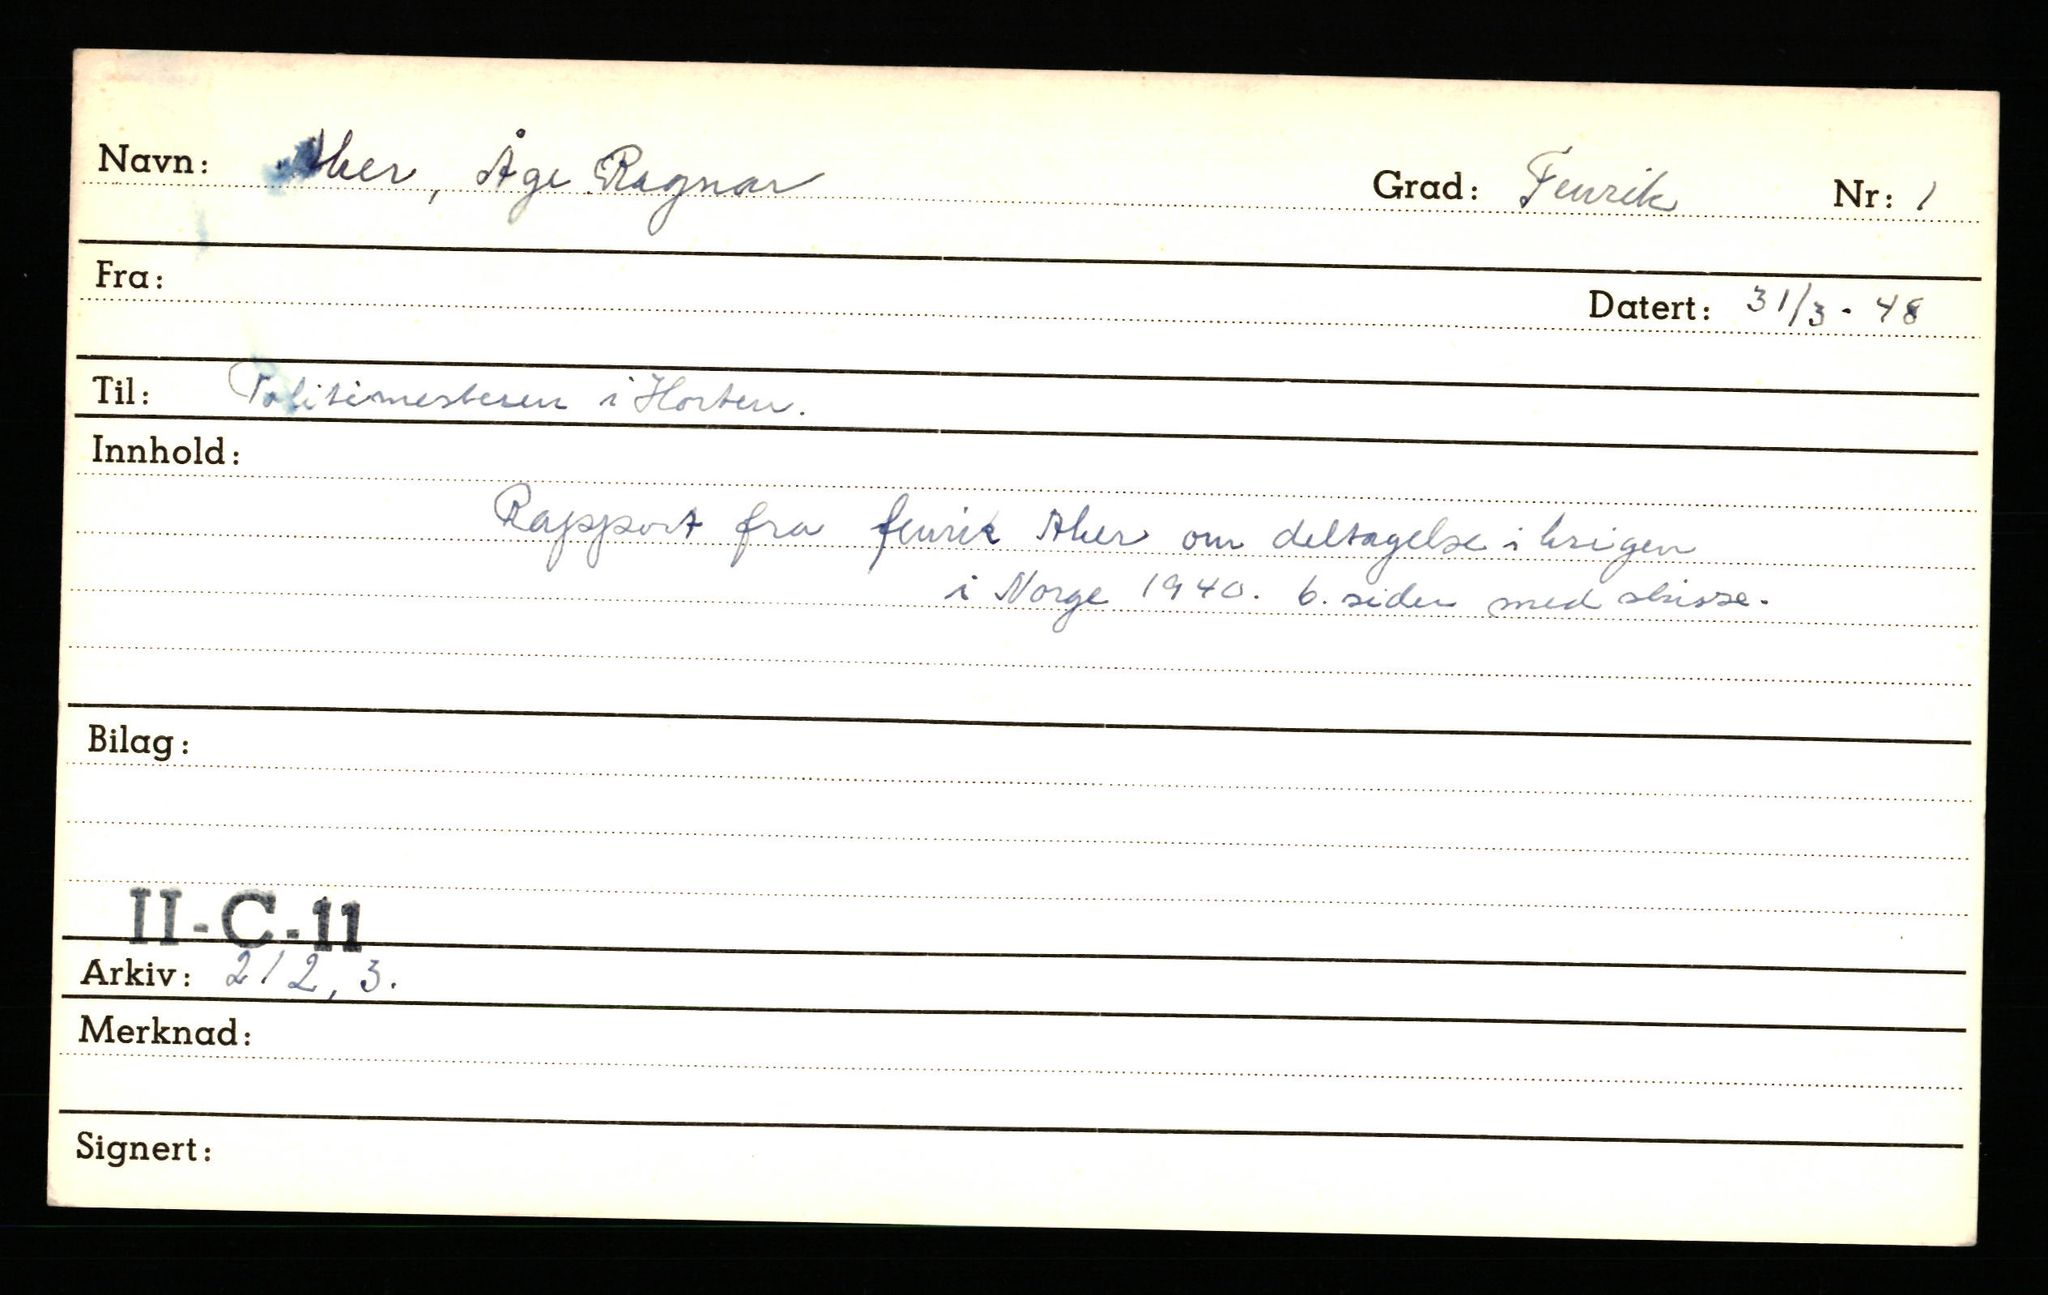 Navn: Aker, Åge Ragnar Grad: Fenrik Nr: 1
Fra:
Datert: 31/3 - 48
Til: Politimesteren i Horten.
Innhold:
Rapport fra fenrik Aker om deltagelse i krigen
i Norge 1940. 6. sider med skisse.
Bilag:
II-C-11
Arkiv: 212, 3.
Merknad:
Signert: